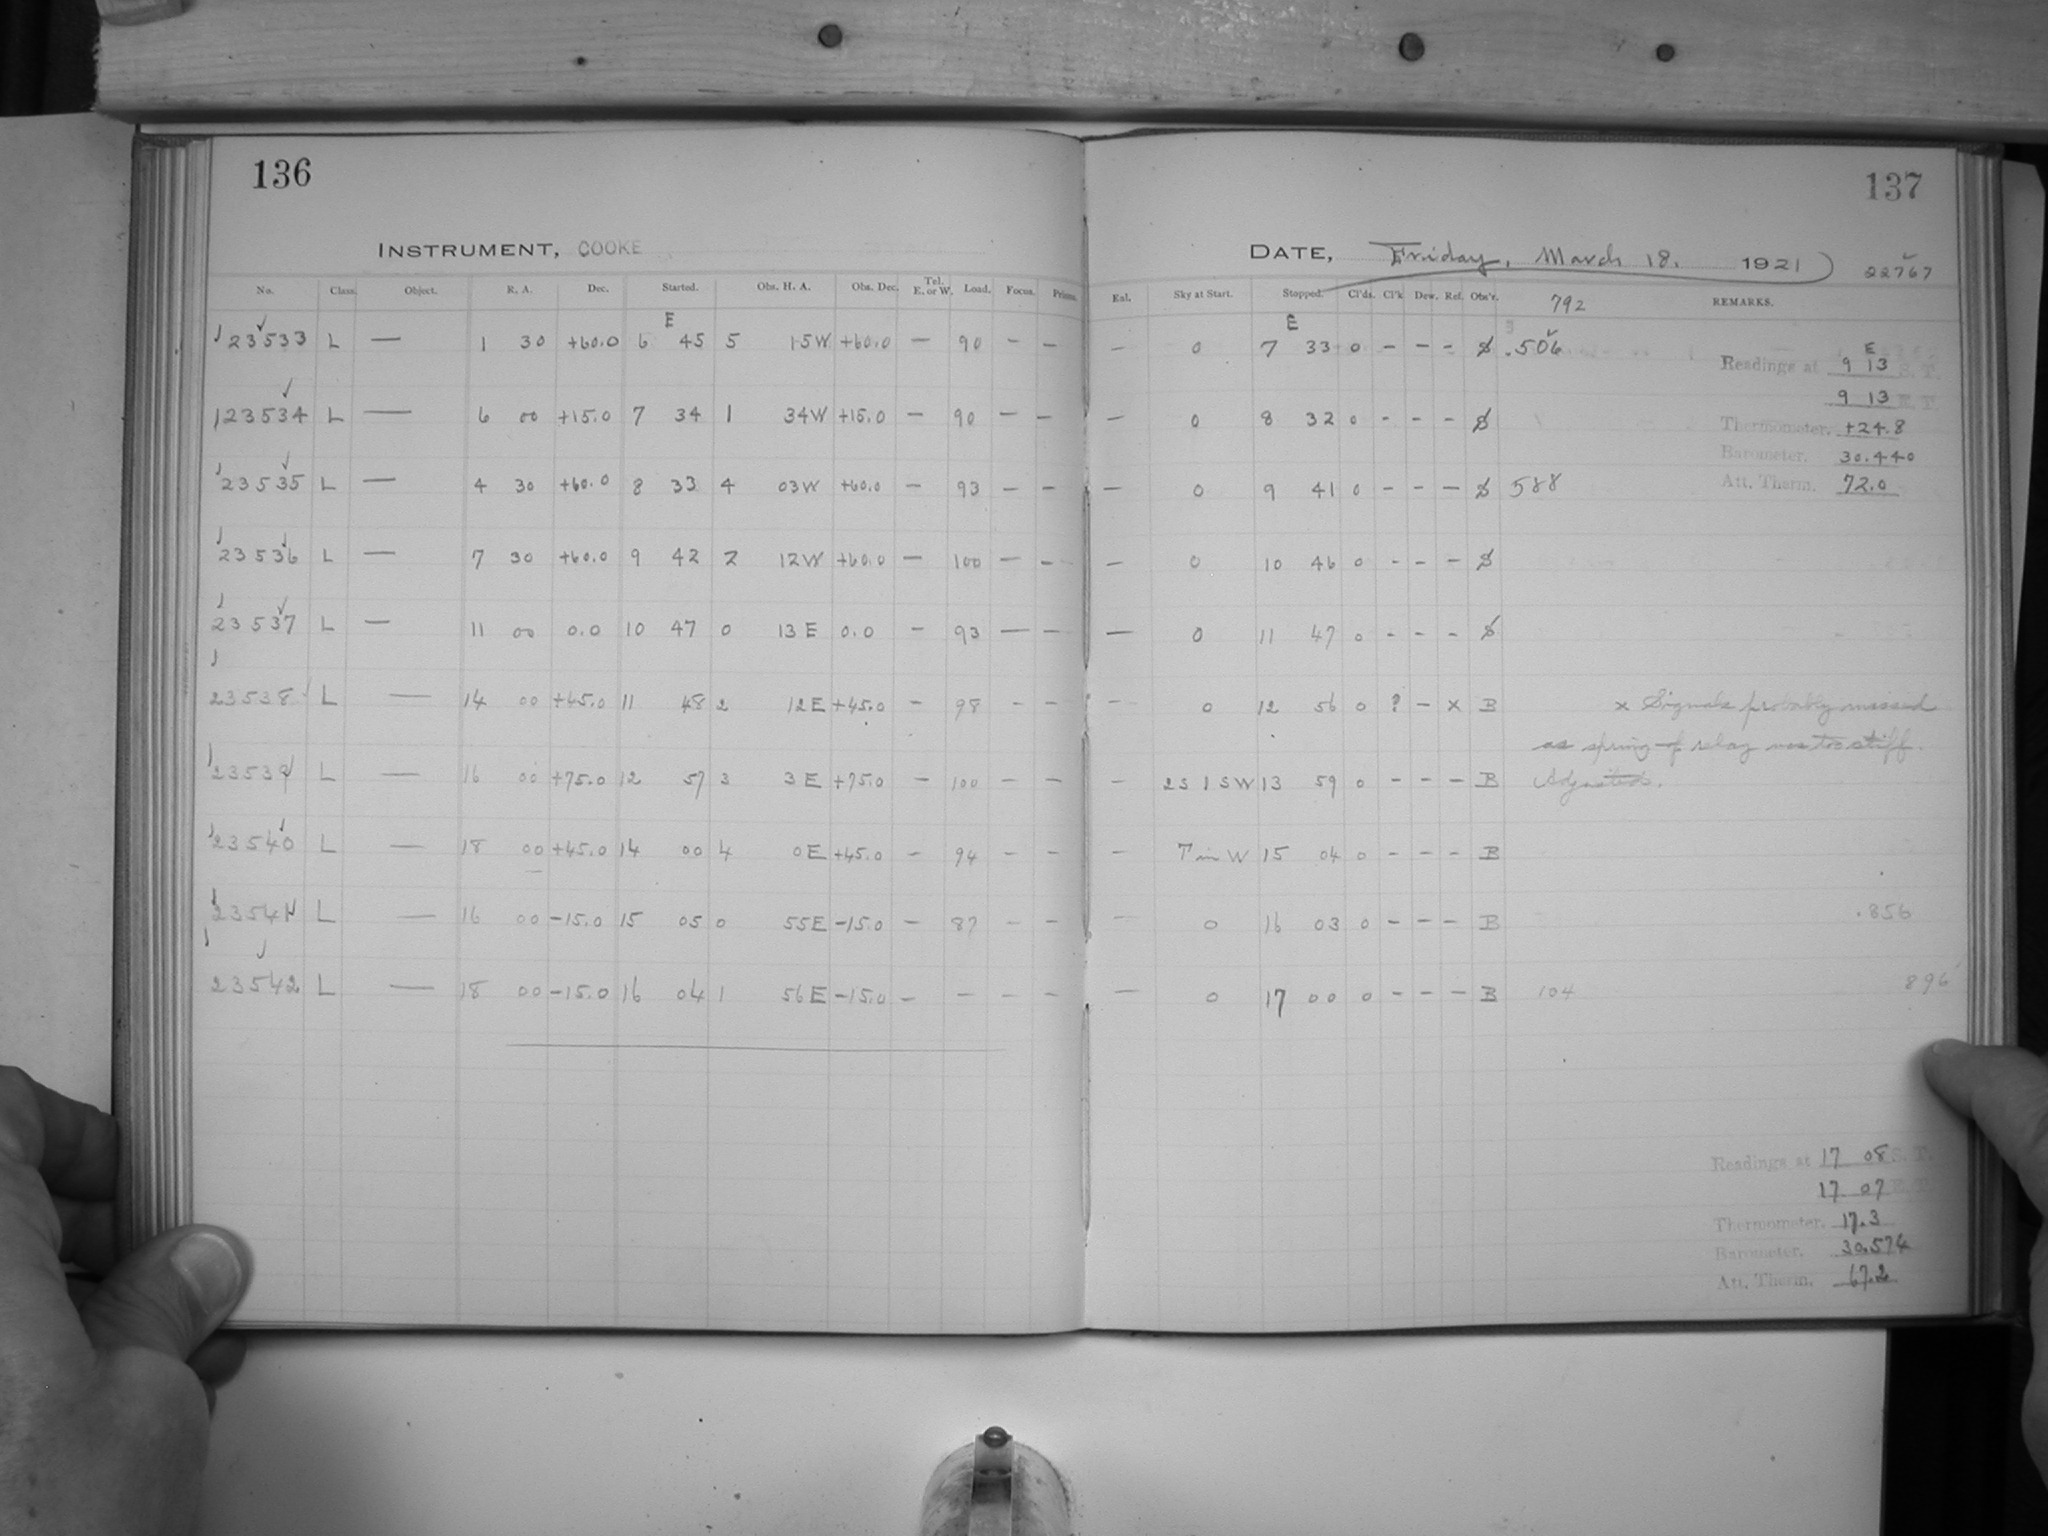 136
INSTRUMENT, COOKE
No. Class. Object. R. A. Dec. Started. Obs. H. A. Obs. Dec. Tel. E. or W. Load. Focus. Prisms.
E
23533 L — 1 30 +60.0 6 45 5 15W +60.0 — 90 — —
23534 L — 6 00 +15.0 7 34 1 34W +15.0 — 90 — —
23535 L — 4 30 +60.0 8 33 4 03W +60.0 — 93 — —
23536 L — 7 30 +60.0 9 42 2 12W +60.0 — 100 — —
23537 L — 11 00 0.0 10 47 0 13E 0.0 — 93 — —
23538 L — 14 00 +45.0 11 48 2 12E +45.0 — 98 — —
23539 L — 16 00 +75.0 12 57 3 3E +75.0 — 100 — —
23540 L — 18 00 +45.0 14 00 4 0E +45.0 — 94 — —
23541 L — 16 00 -15.0 15 05 0 55E -15.0 — 87 — —
23542 L — 18 00 -15.0 16 04 1 56E -15.0 — — — —
137
DATE, Friday, March 18. 1921 22767
Enl. Sky at Start. Stopped. Cl'ds. Cl'k Dew. Ref. Obs'r. 792 REMARKS.
E
— 0 7 33 0 — — — .506
— 0 8 32 0 — — —
— 0 9 41 0 — — — 588
— 0 10 46 0 — — —
— 0 11 47 0 — — —
— 0 12 56 0 ? — x B x Signals probably missed
as spring of relay was too stiff.
— 2S 1SW 13 59 0 — — — B Adjusted.
— 7 in W 15 04 0 — — — B
— 0 16 03 0 — — — B .856
— 0 17 00 0 — — — B 104 896
E
Readings at 9 13 S. T.
9 13 E T
Thermometer. +24.8
Barometer. 30.440
Att. Therm. 72.0
Readings at 17 08 S. T.
17 07 E T
Thermometer. 17.3
Barometer. 30.574
Att. Therm. 67.2